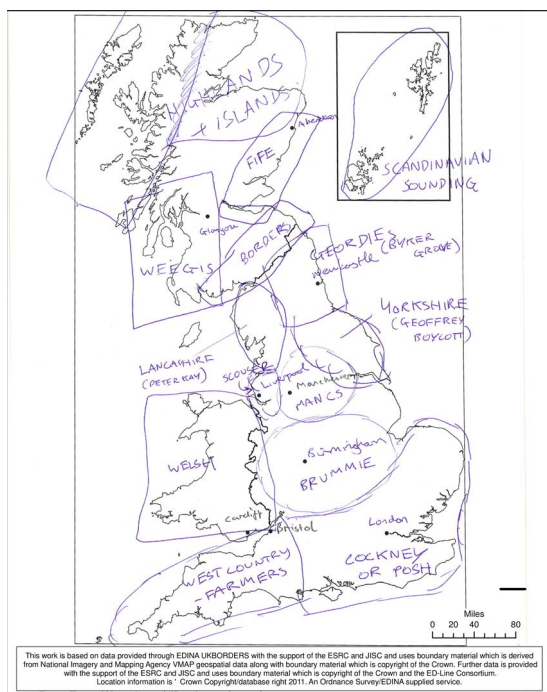 HIGHLANDS
+ ISLANDS
Aberdeen
FIFE
SCANDINAVIAN
SOUNDING
Glasgow
WEEGIS
BORDERS
GEORDIES
Newcastle (BYKER
GROVE)
YORKSHIRE
(GEOFFREY
BOYCOTT)
LANCASHIRE
(PETER KAY)
SCOUSER
Liverpool
Manchester
MANCS
WELSH
Birmingham
BRUMMIE
Cardiff
Bristol
London
WEST COUNTRY
-FARMERS
COCKNEY
OR POSH
Miles
0 20 40 80
This work is based on data provided through EDINA UKBORDERS with the support of the ESRC and JISC and uses boundary material which is derived
from National Imagery and Mapping Agency VMAP geospatial data along with boundary material which is copyright of the Crown. Further data is provided
with the support of the ESRC and JISC and uses boundary material which is copyright of the Crown and the ED-Line Consortium.
Location information is ' Crown Copyright/database right 2011. An Ordnance Survey/EDINA supplied service.